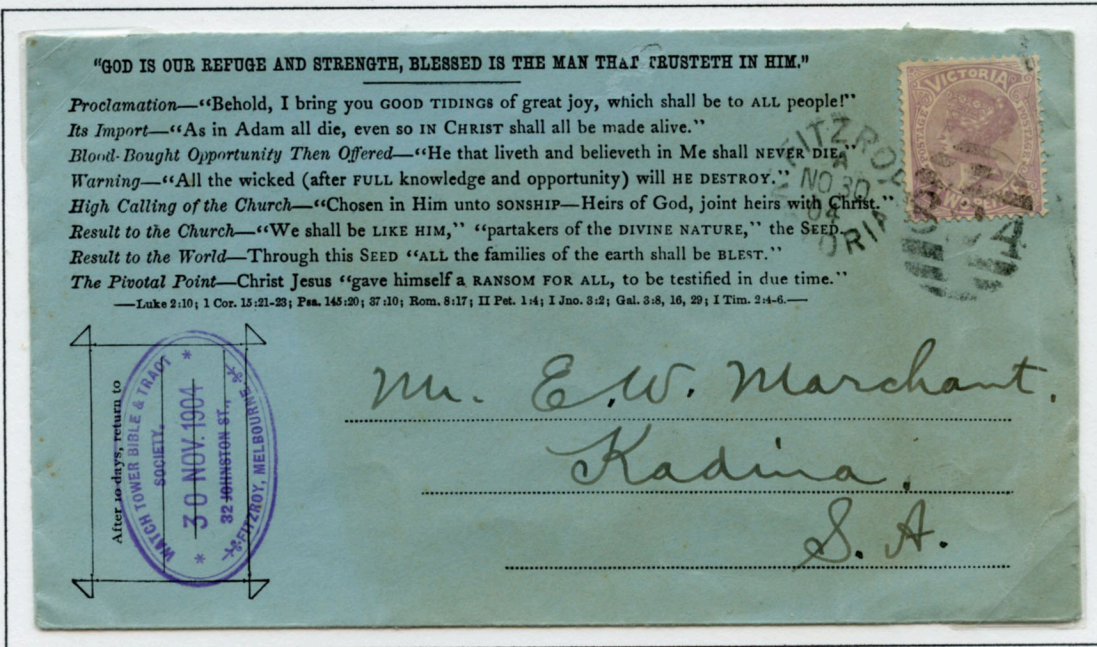 "GOD IS OUR REFUGE AND STRENGTH, BLESSED IS THE MAN THAT TRUSTETH IN HIM."
Proclamation—"Behold, I bring you GOOD TIDINGS of great joy, which shall be to ALL people!"
Its Import—"As in Adam all die, even so IN CHRIST shall all be made alive."
Blood-Bought Opportunity Then Offered—"He that liveth and believeth in Me shall NEVER DIE."
Warning—"All the wicked (after FULL knowledge and opportunity) will HE DESTROY."
High Calling of the Church—"Chosen in Him unto SONSHIP—Heirs of God, joint heirs with Christ."
Result to the Church—"We shall be LIKE HIM," "partakers of the DIVINE NATURE," the SEED.
Result to the World—Through this SEED "ALL the families of the earth shall be BLEST."
The Pivotal Point—Christ Jesus "gave himself a RANSOM FOR ALL, to be testified in due time."
—Luke 2:10; 1 Cor. 15:21-23; Psa. 145:20; 37:10; Rom. 8:17; II Pet. 1:4; I Jno. 3:2; Gal. 3:8, 16, 29; I Tim. 2:4-6.—
VICTORIA
POSTAGE
POSTAGE
TWO PENCE
FITZROY
A
NO 30
04
VICTORIA
After 10 days, return to
WATCH TOWER BIBLE & TRACT
SOCIETY,
* 30 NOV. 1904 *
32 JOHNSTON ST.,
FITZROY, MELBOURNE
Mr. E. W. Marchant,
Kadina,
S. A.